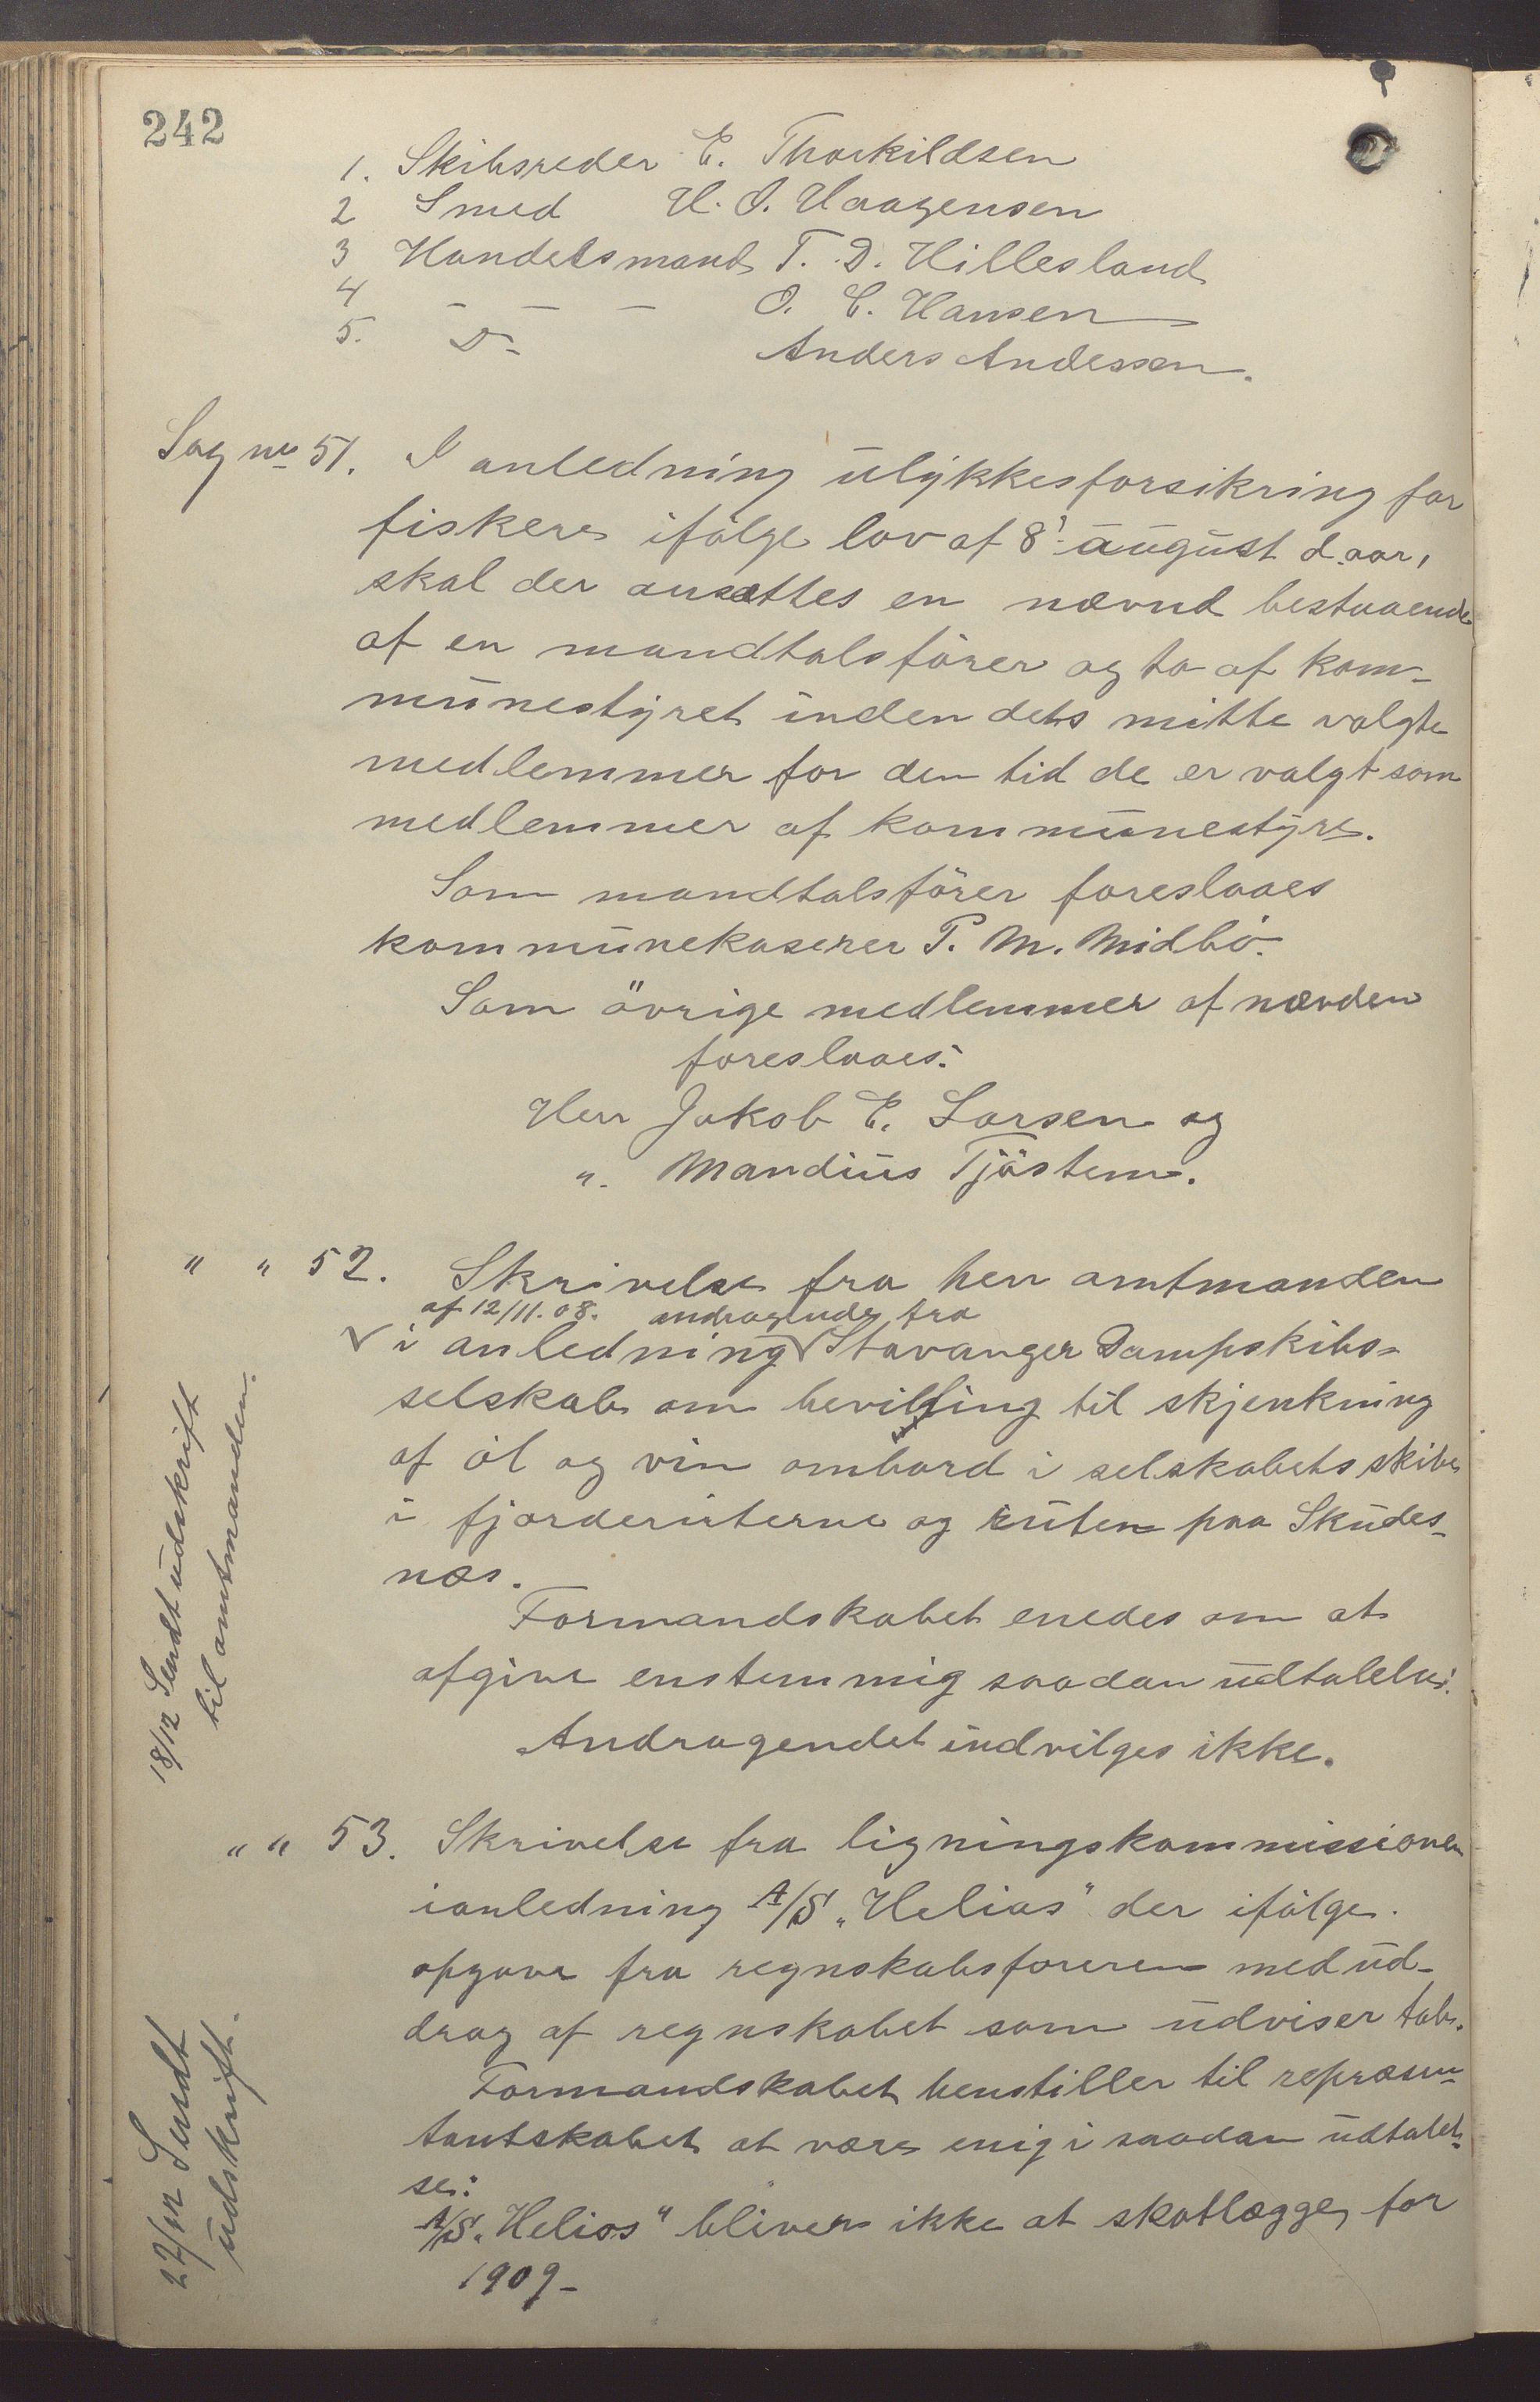 242
1. Skibsreder E. Thorkildsen
2 Smed H. O. Haagensen
3 Handelsmand T. D. Hillesland
4 - - - O. C. Hansen
5. D- Anders Andessen.
Sag no 51. I anledning ulykkesforsikring for
fiskere ifølge lov af 8' august d. aar,
skal der ansættes en nævnd bestaaende
af en mandtalsfører og to af kom-
munestyret inden dets mitte valgte
medlemmer for den tid de er valgt som
medlemmer af kommunestyre.
Som mandtalsfører foreslaaes
kommunekaserer P. M. Midbö.
Som övrige medlemmer af nævden
foreslaaes:
Herr Jakob E. Larsen og
". Mandius Tjöstem.
" " 52. Skrivelse fra herr amtmanden
af 12/11.08. andragende fra
i anledning Stavanger Dampskibs-
selskab om bevilling til skjenkning
af øl og vin ombord i selskabets skibe
i fjorderuterne og ruten paa Skudes-
næs.
Formandskabet enedes om at
afgive enstemmig saadan udtalelse:
Andragendet indvilges ikke.
18/12 Sendt udskrift
til amtmanden.
" " 53. Skrivelse fra ligningskommissionen
ianledning A/S "Helios" der ifølge
opgave fra regnskabsføreren med ud-
drag af regnskabet som udviser tab.
Formandskabet henstiller til repræsen-
tantskabet at være enig i saadan udtalel-
se:
A/S. "Helios" bliver ikke at skatlægge for
1909-
22/12 Sendt
udskrift.